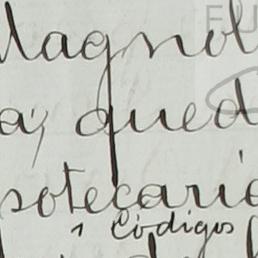 Magnol
a; qued
potecario
1 Códigos